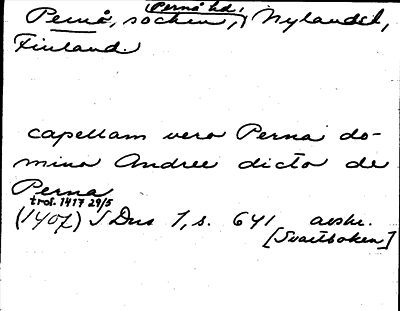 Pernå hd.
Pernå, socken, Nylandsl,
Finland.
capellam vero Perna do-
mino Andree dicto de
Perna
trol. 1417 29/5
(1407) SDns 1, s. 641 avskr.
[Svartboken]